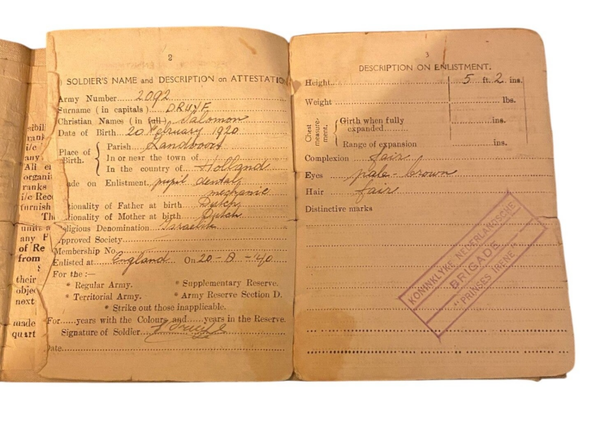 2
SOLDIER'S NAME and DESCRIPTION on ATTESTATION
Army Number 2092
Surname (in capitals) DRUYF
Christian Names (in full) Salomon
Date of Birth 20 February 1920
Place of Birth. { Parish
In or near the town of
In the country of Holland
Trade on Enlistment pupil dental mechanic
Nationality of Father at birth Dutch
Nationality of Mother at birth Dutch
Religious Denomination
Approved Society
Membership No.
Enlisted at England On 20-8-40
For the :—
* Regular Army. * Supplementary Reserve.
* Territorial Army. * Army Reserve Section D.
* Strike out those inapplicable.
For ...... years with the Colours and ...... years in the Reserve.
Signature of Soldier
Date
3
DESCRIPTION ON ENLISTMENT.
Height 5 ft. 2 ins.
Weight lbs.
Chest measurement. { Girth when fully expanded ins.
Range of expansion ins.
Complexion fair
Eyes pale-brown
Hair fair
Distinctive marks
KONINKLYKE NEDERLANDSCHE
BRIGADE
"PRINSES IRENE"
made
quart
their
next
of Re
from
ranks
furnish